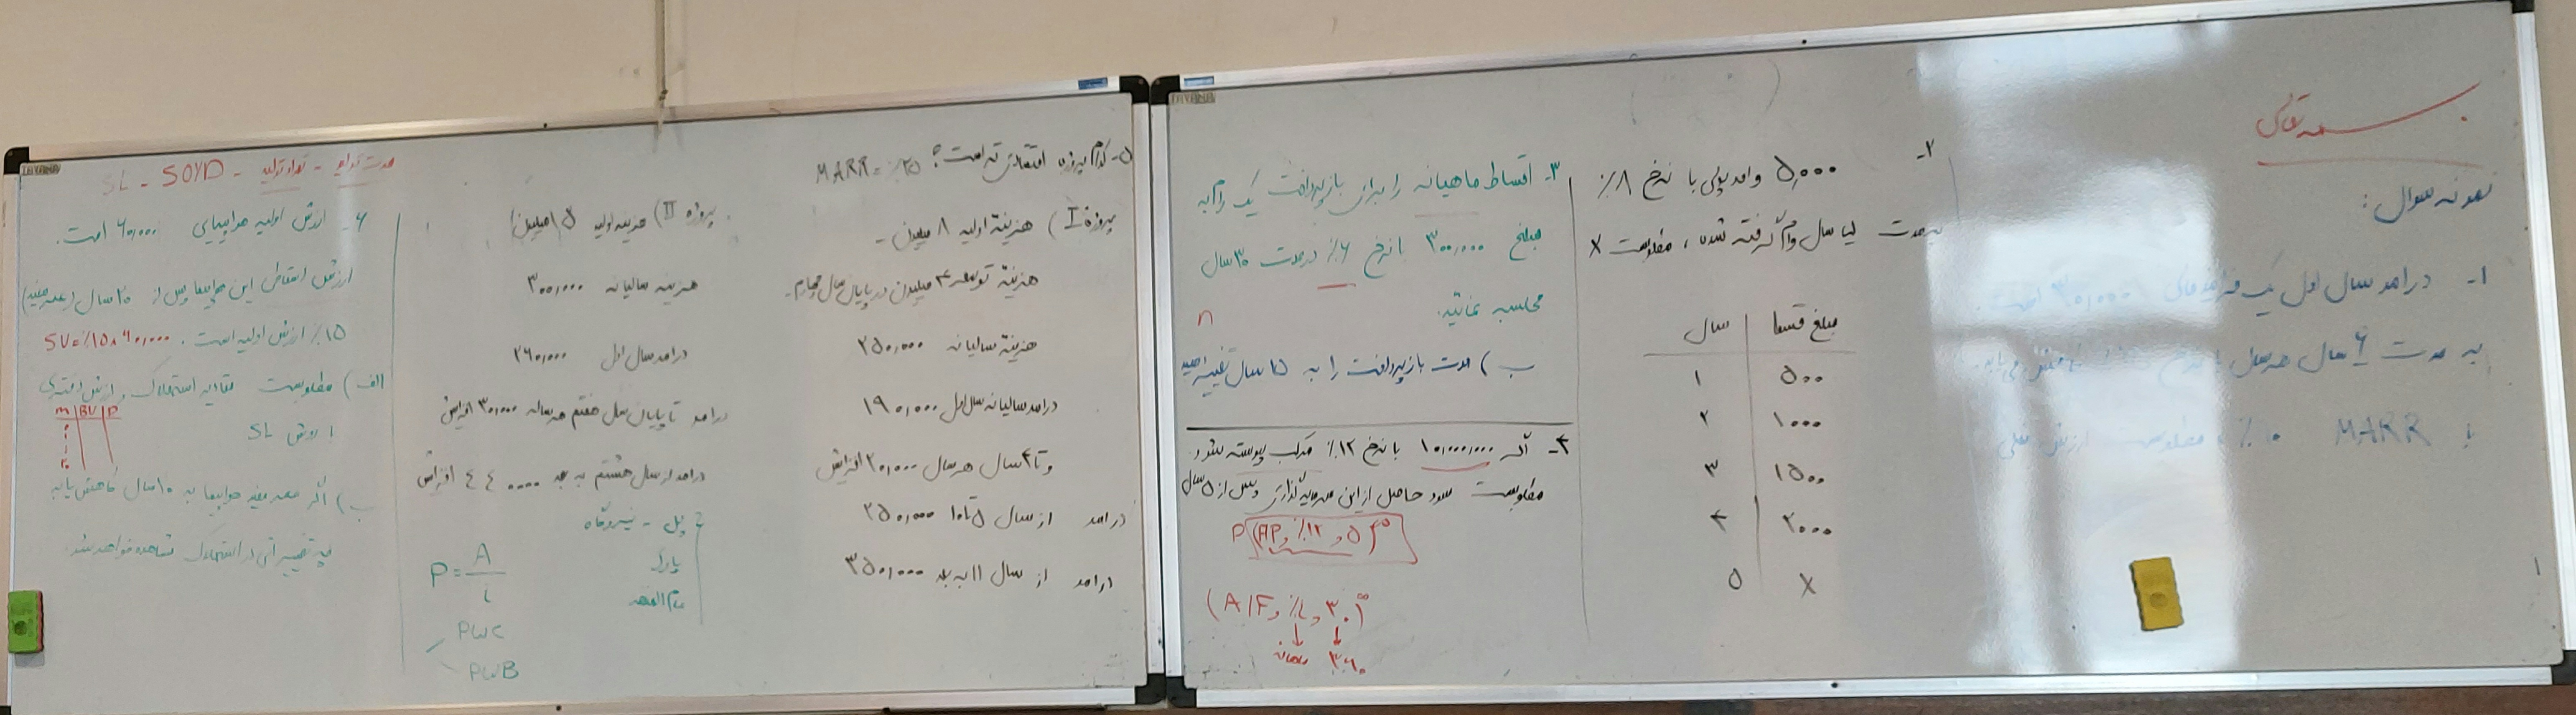 بسمه تعالی
نمونه سوال:
۱- درامد سال اول یک
به مدت ۶ سال هر سال با نرخ
با MARR ۱۰٪ مطلوبست ارزش فعلی
۲- ۵,۰۰۰ واحد پولی با نرخ ۸٪
به مدت سال وام گرفته شده، مطلوبست X
سال | مبلغ قسط
۱ ۵۰۰
۲ ۱۰۰۰
۳ ۱۵۰۰
۴ ۲۰۰۰
۵ X
۳- اقساط ماهیانه را برای بازپرداخت یک وام به
مبلغ ۳۰۰,۰۰۰ با نرخ ۶٪ در مدت ۳۰ سال
محاسبه نمائید.
n
ب) مدت بازپرداخت را به ۱۵ سال تغییر دهید
۴- اگر ۱۰,۰۰۰,۰۰۰ با نرخ ۱۲٪ مرکب پیوسته شود
مطلوبست سود حاصل از این سرمایه گذاری پس از ۵ سال
P(AP, ٪۱۲, ۵)
(A/F, ٪i, ۳۰)
ماهانه ۳۶۰
۵- کدام پروژه اقتصادی تر است؟ MARR = ٪۲۵
پروژه I) هزینه اولیه ۸ میلیون -
هزینه توسعه ۴ میلیون در پایان سال چهارم -
هزینه سالیانه ۲۵۰,۰۰۰
درامد سالیانه سال اول ۱۹۰,۰۰۰
و تا ۴ سال هر سال ۲۰,۰۰۰ افزایش
درامد از سال ۵ تا ۱۰ ۲۵۰,۰۰۰
درامد از سال ۱۱ به بعد ۳۵۰,۰۰۰
پروژه II) هزینه اولیه
هزینه سالیانه ۳۰۰,۰۰۰
درامد سال اول ۲۶۰,۰۰۰
درامد تا پایان سال هفتم هر ساله ۳۰,۰۰۰ افزایش
درامد از سال هشتم به بعد افزایش
پل - نیروگاه
پارک
عام المنفعه
P = A/i
PWC
PWB
مدت تولید - تعداد تولید - SOYD - SL
۶- ارزش اولیه هواپیمای ۶۰,۰۰۰ است.
ارزش اسقاطی این هواپیما پس از ۲۰ سال (عمر مفید)
۱۵٪ ارزش اولیه است. SV=٪۱۵×۶۰,۰۰۰
الف) مطلوبست مقادیر استهلاک و ارزش دفتری
با روش SL
m | BV | D
ب) اگر عمر مفید هواپیما به ۱۰ سال کاهش یابد
چه تغییراتی در استهلاک مشاهده خواهد شد.